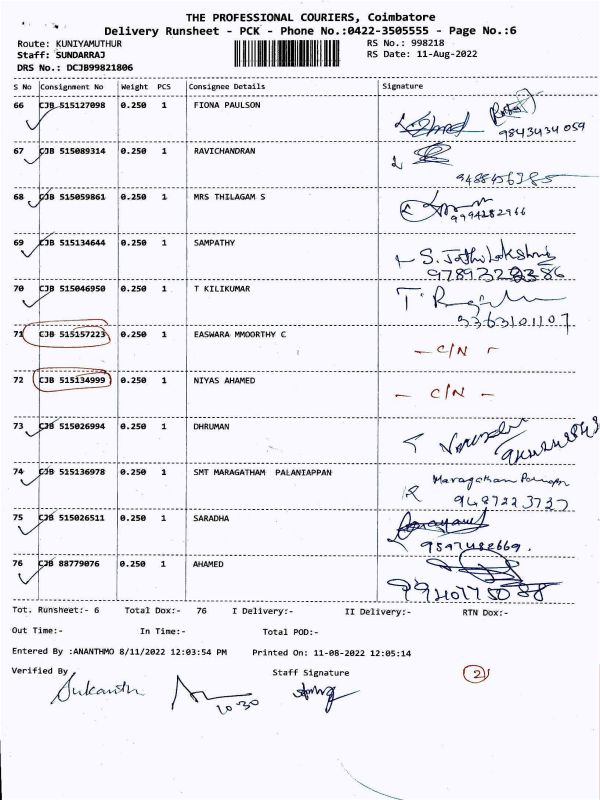 THE PROFESSIONAL COURIERS, Coimbatore
Delivery Runsheet - PCK - Phone No.:0422-3505555 - Page No.:6
Route: KUNIYAMUTHUR RS No.: 998218
Staff: SUNDARRAJ RS Date: 11-Aug-2022
DRS No.: DCJB99821806
S No Consignment No Weight PCS Consignee Details Signature
66 CJB 515127098 0.250 1 FIONA PAULSON
9843434059
67 CJB 515089314 0.250 1 RAVICHANDRAN
9488456385
68 CJB 515059861 0.250 1 MRS THILAGAM S
9994282966
69 CJB 515134644 0.250 1 SAMPATHY
S. Jothi Lakshmi
70 CJB 515046950 0.250 1 T KILIKUMAR
9363101107
71 CJB 515157223 0.250 1 EASWARA MMOORTHY C
- C/N -
72 CJB 515134999 0.250 1 NIYAS AHAMED
- C/N -
73 CJB 515026994 0.250 1 DHRUMAN
74 CJB 515136978 0.250 1 SMT MARAGATHAM PALANIAPPAN
Maragatham
9487223737
75 CJB 515026511 0.250 1 SARADHA
76 CJB 88779076 0.250 1 AHAMED
Tot. Runsheet:- 6 Total Dox:- 76 I Delivery:- II Delivery:- RTN Dox:-
Out Time:- In Time:- Total POD:-
Entered By :ANANTHMO 8/11/2022 12:03:54 PM Printed On: 11-08-2022 12:05:14
Verified By Staff Signature
2
Sukanth
10-30